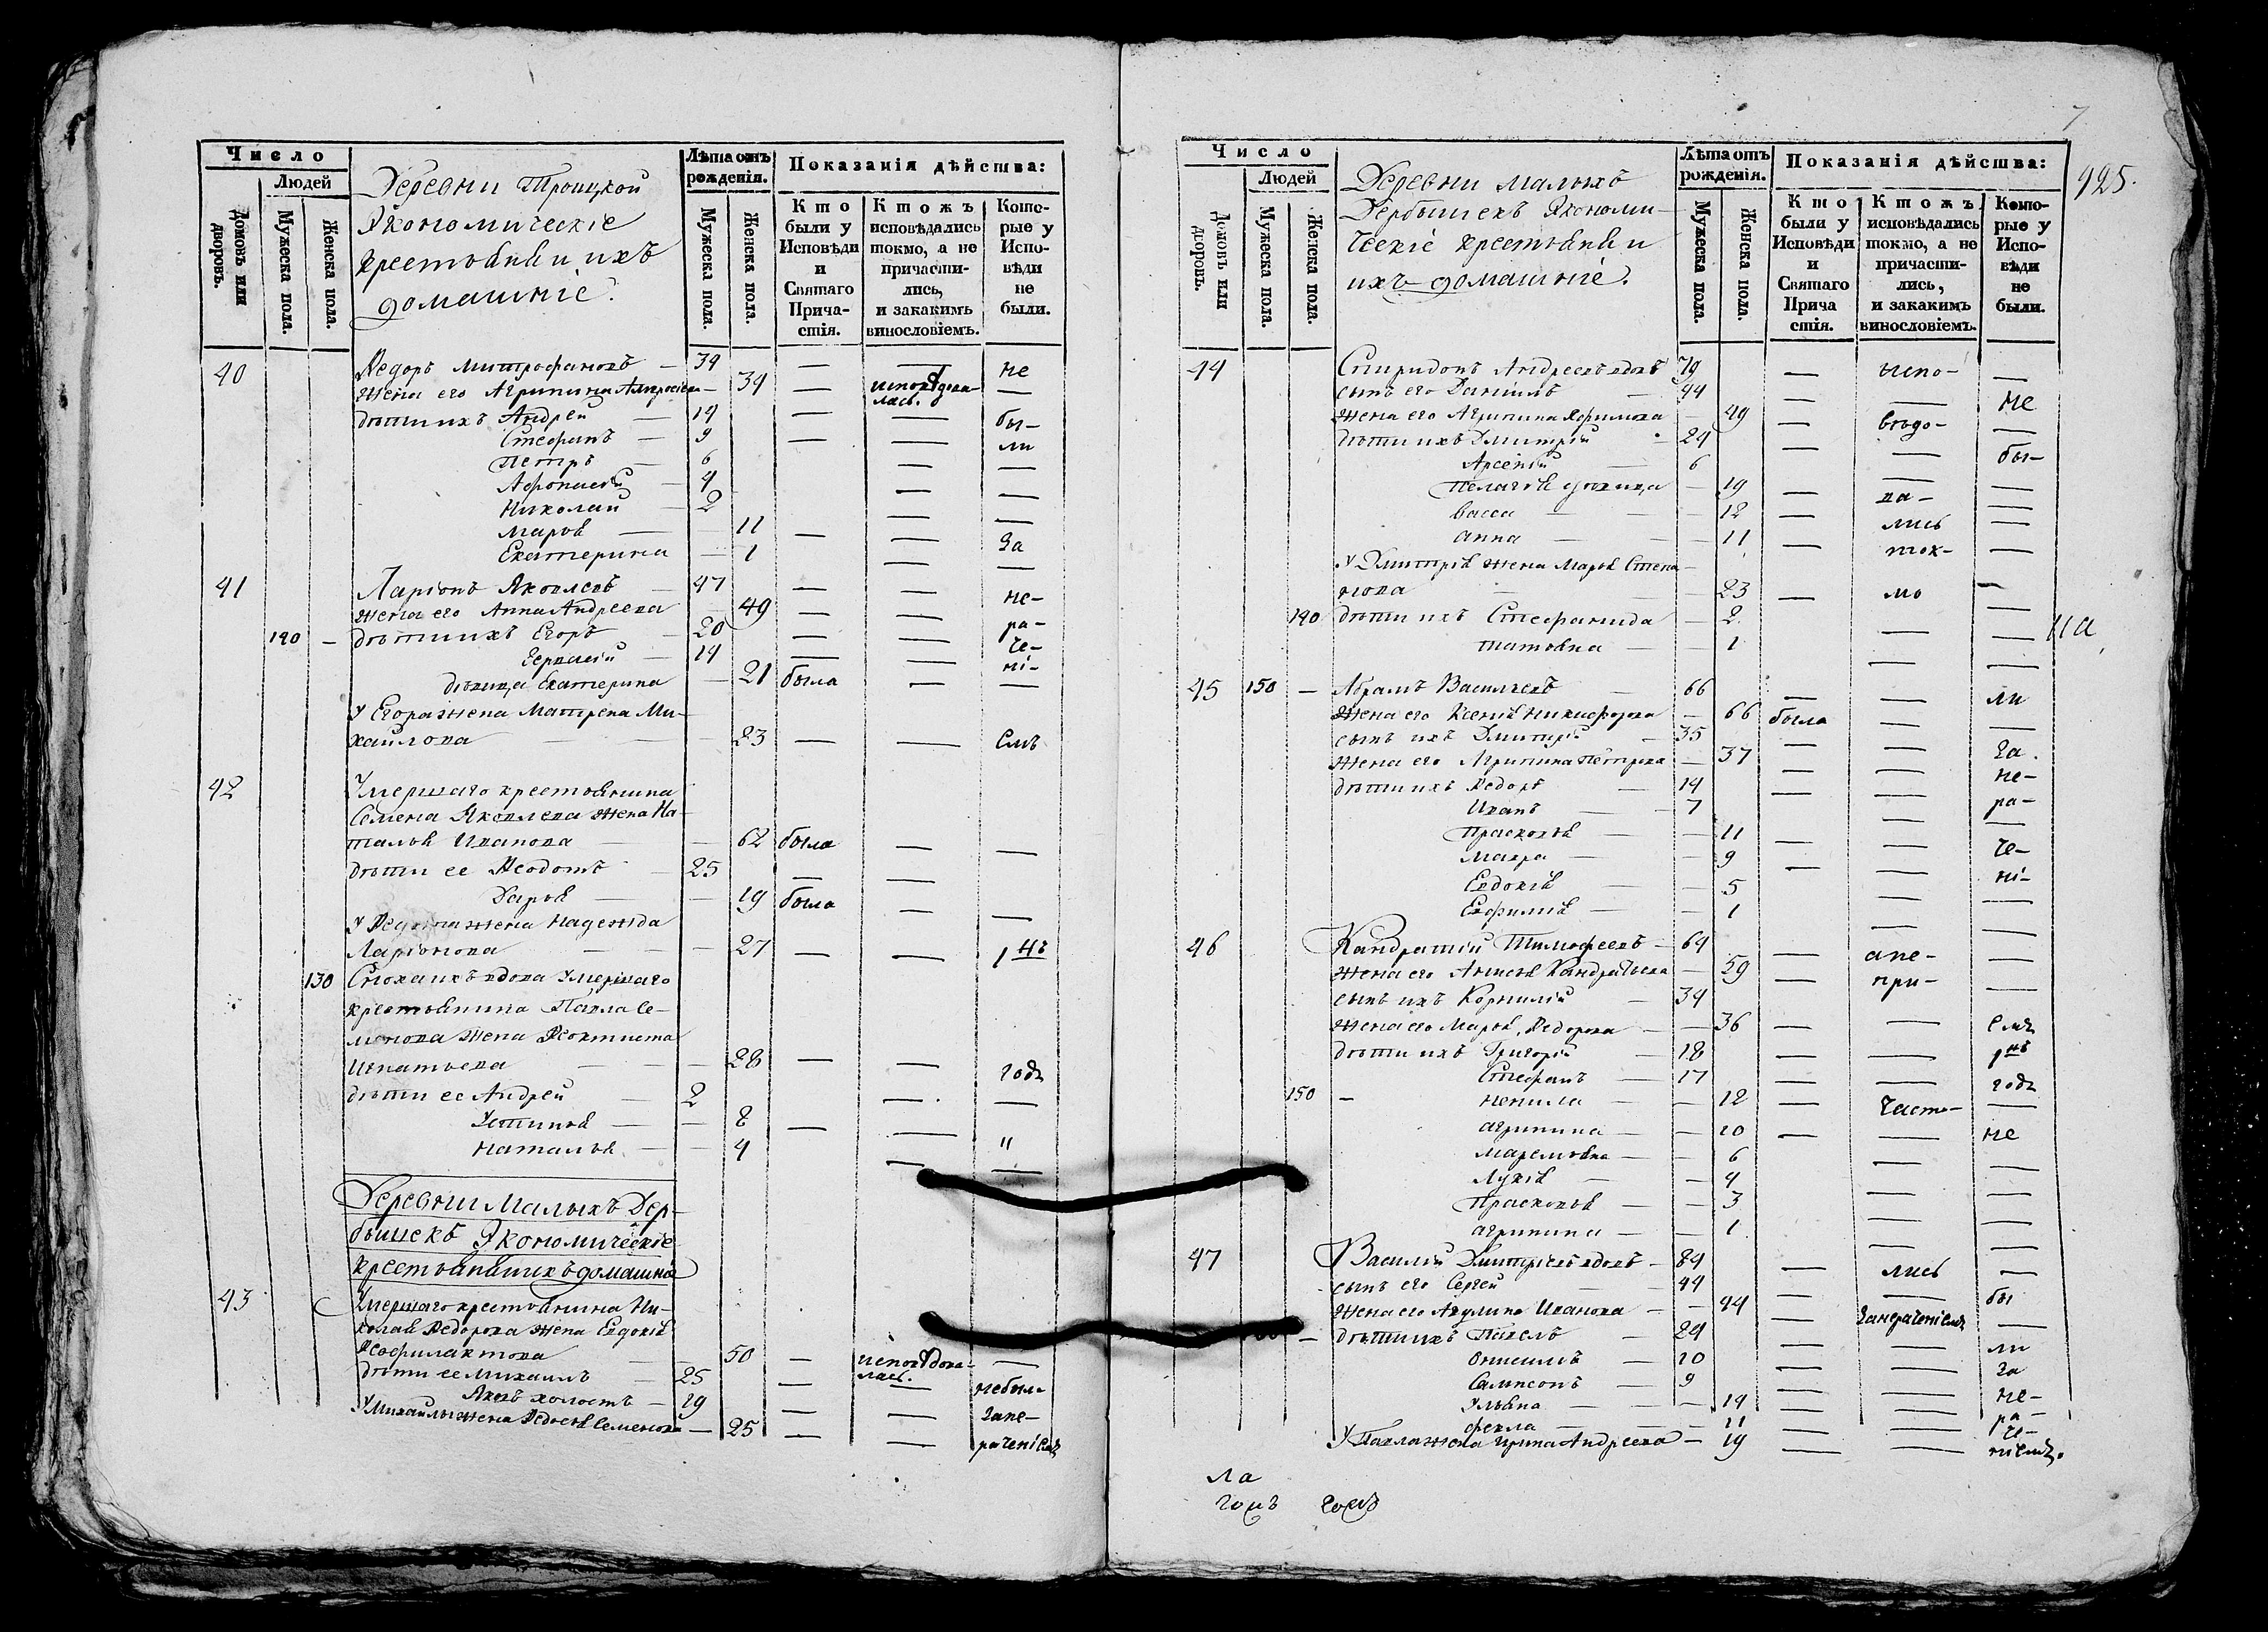 Число
Людей
Домовъ или дворовъ.
Мужеска пола.
Женска пола.
Деревни Троицкой
Экономическіе
крестьяня и ихъ
домашніе.
Лѣта отъ рожденія.
Мужеска пола.
Женска пола.
Показанія дѣйства:
Кто были у Исповѣди и Святаго Прича-стія.
Ктожъ исповѣдались токмо, а не причасти-лись, и закакимъ винословіемъ.
Кото-рые у Испо-вѣди не были.
40 Ѳедоръ Митрофановъ — 39 — — не
Жена его Агрипина Амвросіева — 39 — исповѣдова-лась. —
дѣти ихъ Андрей — 14 — — бы-
Стефанъ — 9 — — ли
Петръ — 6 — —
Афонасей — 4 — —
Николай — 2 — —
Марѳа — 11 — — За
Екатерина — 1 — —
41 Ларіонъ Яковлевъ — 47 — — не-
жена его Анна Андреева — 49 — — ра-
140 — дѣти ихъ Егоръ — 20 — — че-
Гервасій — 14 — — ні-
дѣвица Екатерина — 21 была — —
У Егора жена Матрена Ми-
хайлова — 23 — — емъ
42 Умершаго крестьянина
Семена Яковлева жена На
талья Иванова — 62 была — —
дѣти ее Ѳеодотъ — 25 — —
Дарья — 19 была — —
У Ѳедота жена Надежда
Ларіонова — 27 — — 1нъ
130 Сноха ихъ вдова Умершаго
крестьянина Павла Се-
менова жена Ѳеоктиста
Игнатьева — 28 — — годъ
дѣти ее Андрей — 2 — —
Устинья — 8 — — "
Наталья — 4 — —
Деревни Малыхъ Дер-
бышекъ Экономическіе
крестьяня и ихъ домашніе
43 Умершаго крестьянина Ни-
колая Ѳедорова жена Евдокія
Ѳеофилактова — 50 — исповѣдова-лась. —
дѣти ее Михаилъ — 25 — — небыли
Яковъ холостъ — 19 — — Зане-
У Михайлы жена Ѳедосья Семенова — 25 — — раченіемъ
7
925.
Число
Людей
Домовъ или дворовъ.
Мужеска пола.
Женска пола.
Деревни малыхъ
Дербышекъ Экономи-
ческіе крестьяня и
ихъ домашніе.
Лѣта отъ рожденія.
Мужеска пола.
Женска пола.
Показанія дѣйства:
Кто были у Исповѣди и Святаго Прича стія.
Ктожъ исповѣдались токмо, а не причасти-лись, и закакимъ винословіемъ.
Кото-рые у Испо-вѣди не были.
44 Спиридонъ Андреевъ вдовъ 79 — испо- —
сынъ его Даніилъ — 44 — — не
жена его Агрипина Ефимова — 49 — вѣдо- —
дѣти ихъ Дмитрій — 24 — — бы-
Арсеній — 6 — —
Пелагея дѣвица — 19 — ва- —
Васса — 12 — лись —
Анна — 11 — ток- —
У Дмитрія жена Марья Степа-
нова — 23 — мо —
140 дѣти ихъ Стефанида — 2 — —
Татьяна — 1 — —
на
45 150 — Абрамъ Васильевъ — 66 — — ли
Жена его Ксенія Никифорова — 66 была — —
сынъ ихъ Дмитрій — 35 — — За
Жена его Агрипина Петрова — 37 — — не-
дѣти ихъ Ѳедоръ — 14 — — ра-
Иванъ — 7 — —
Прасковья — 11 — — че-
Мавра — 9 — — ні-
Евдокія — 5 — —
Евфимія — 1 — —
46 Кандратій Тимофеевъ — 64 — а не- —
жена его Анисья Кандратьева — 59 — при- —
сынъ ихъ Корнилій — 34
Жена его Марья Ѳедорова — 36 — — емъ
дѣти ихъ Григорій — 18 — — 1нъ
Стефанъ — 17 — — годъ
150 — Ненила — 12 — части- —
Агрипина — 10 — — не
Маремьяна — 6 — —
Лукія — 4 — —
Прасковья — 3 — —
Агрипина — 1 — —
47 Василій Дмитріевъ вдовъ — 84 — лись —
сынъ его Сергей — 44 — — бы
Жена его Акулина Иванова — 44 — Занераченіемъ —
дѣти ихъ Павелъ — 24 — — ли
Онисимъ — 10 — — За
Сампсонъ — 9 — — не-
Ульяна — 14 — — ра-
Фекла — 11 — — че-
У Павла жена Ирина Андреева — 19 — — ніемъ.
ла